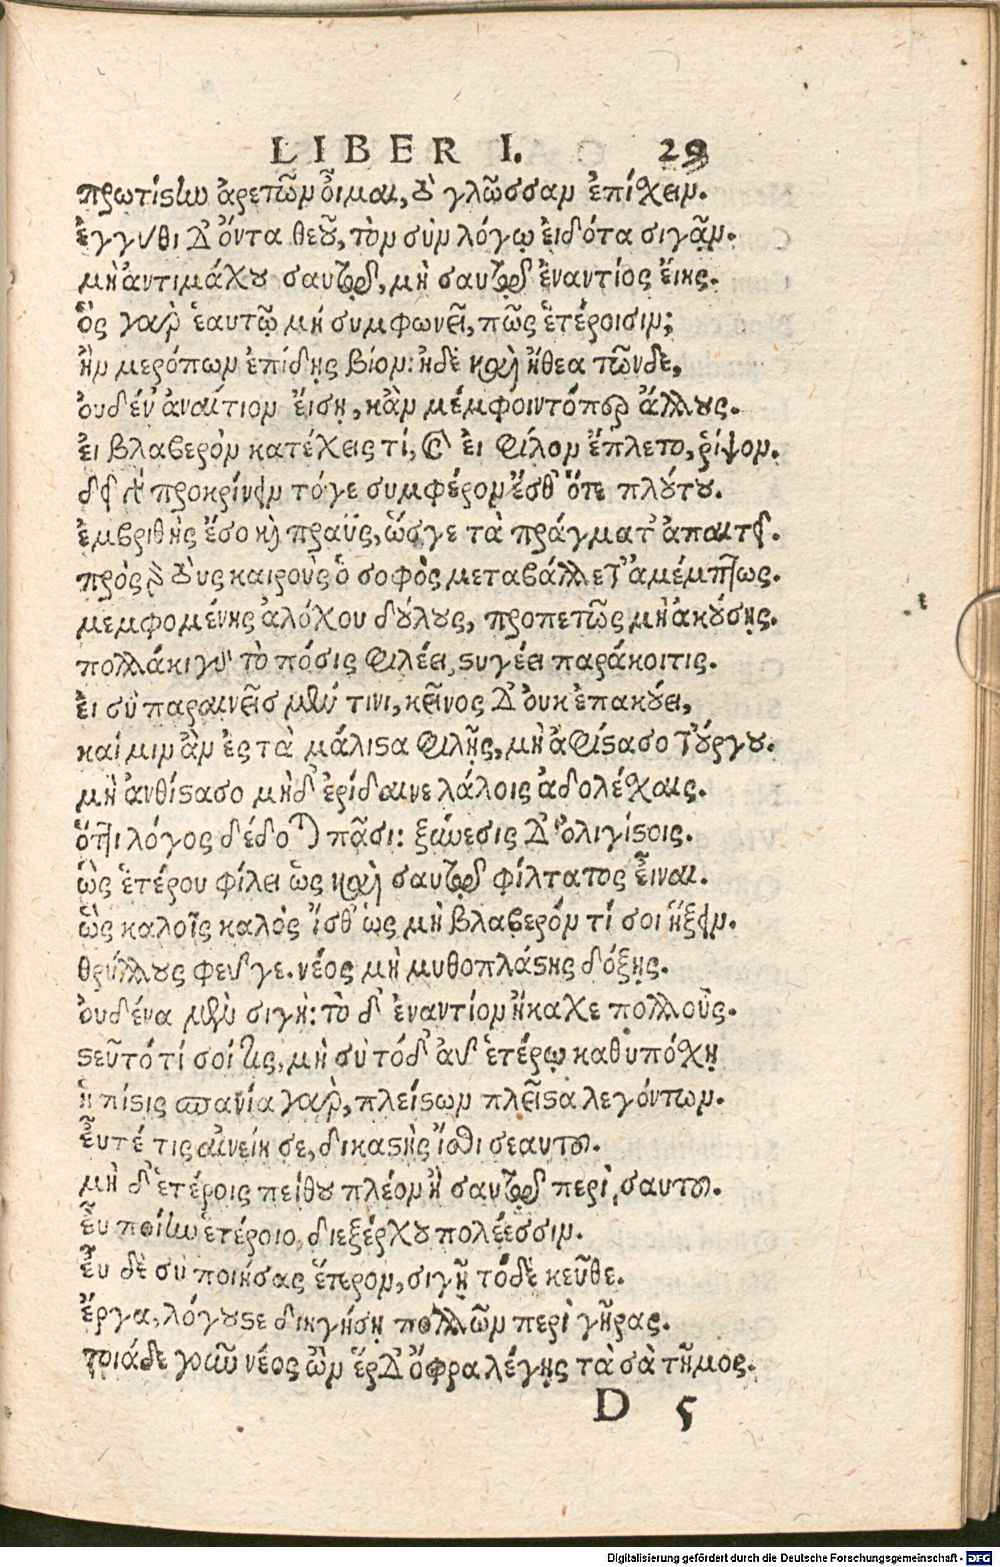 LIBER I. 29
πρωτίστην ἀρετῶν οἶμαι, τὸ γλῶσσαν ἐπίχειν.
ἐγγύθι δ' ὄντα θεοῦ, τὸν σὺν λόγῳ εἰδότα σιγᾷν.
μὴ ἀντιμάχου σαυτῷ, μὴ σαυτῷ ἐναντίος εἴης.
ὃς γὰρ ἑαυτῷ μὴ συμφωνεῖ, πῶς ἑτέροισιν;
ἢν μερόπων ἐπίδῃς βίον: ἠδὲ καὶ ἤθεα τῶνδε,
οὐδέν' ἀναίτιον εἴσῃ, κἂν μέμφοιντόπερ ἄλλους.
εἰ βλαβερὸν κατέχεις τί, καὶ εἰ φίλον ἔπλετο, ῥίψον.
δεῖ προκρίνειν τόγε συμφέρον ἔσθ' ὅτε πλούτου.
ἐμβριθὴς ἔσο καὶ πραΰς, ὥσγε τὰ πράγματ' ἀπαιτεῖ.
πρὸς τοὺς καιροὺς ὁ σοφὸς μεταβάλλετ' ἀμέμπτως.
μεμφομένης ἀλόχου δούλους, προπετῶς μὴ ἀκούσῃς.
πολλάκι γὰρ τὸ πόσις φιλέει, στυγέει παράκοιτις.
εἰ σὺ παραινεῖς μέν τινι, κεῖνος δ' οὐκ ἐπακούει,
καί μιν ἂν ἐς τὰ μάλιστα φιλῇς, μὴ ἀφίστασο τοὔργου.
μὴ ἀνθίστασο μηδ' ἐρίδαινε λάλοις ἀδολέχαις.
ὅττι λόγος δέδοται πᾶσι: ξύνεσις δ' ὀλιγίστοις.
ὡς ἑτέρου φίλει ὥς καὶ σαυτῷ φίλτατος εἶναι.
ὣς καλοῖς καλὸς ἴσθ' ὡς μὴ βλαβερόν τί σοι ἥξειν.
θρύλλους φεῦγε. νέος μὴ μυθοπλάστης δόξῃς.
οὐδένα μὲν σιγὴ: τὸ δ' ἐναντίον ἤκαχε πολλοῦς.
στεῦτό τί σοί τις, μὴ σὺ τόδ' αὖ ἑτέρῳ καθυπόχῃ
ἡ πίστις σπανία γὰρ, πλείστων πλεῖστα λεγόντων.
εὖτέ τις αἰνείη σε, δικαστὴς ἴσθι σεαυτοῦ.
μὴ δ' ἑτέροις πείθου πλέον ἢ σαυτῷ περὶ σαυτοῦ.
εὖ ποίην ἑτέροιο, διεξέρχου πολέεσσιν.
εὖ δὲ σὺ ποιήσας ἕτερον, σιγῇ τόδε κεῦθε.
ἔργα, λόγουστε διηγήσῃ πολλῶν περὶ γῆρας.
τοιάδε γοῦν νέος ὢν ἕρδ' ὄφρα λέγῃς τὰ σὰ τῆμος.
D 5
Digitalisierung gefördert durch die Deutsche Forschungsgemeinschaft - DFG